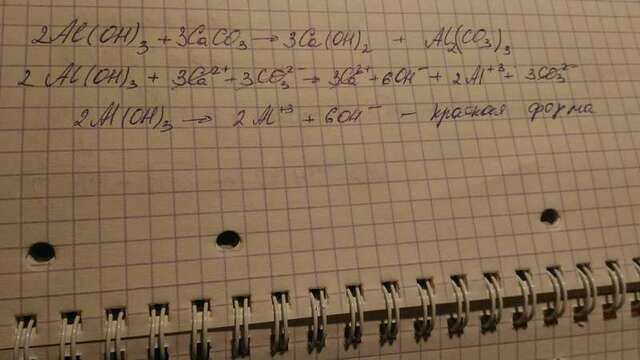 2Al(OH)₃ + 3CaCO₃ → 3Ca(OH)₂ + Al₂(CO₃)₃
2Al(OH)₃ + 3Ca²⁺ + 3CO₃²⁻ → 3Ca²⁺ + 6OH⁻ + 2Al⁺³ + 3CO₃²⁻
2Al(OH)₃ → 2Al⁺³ + 6OH⁻ – краткая форма